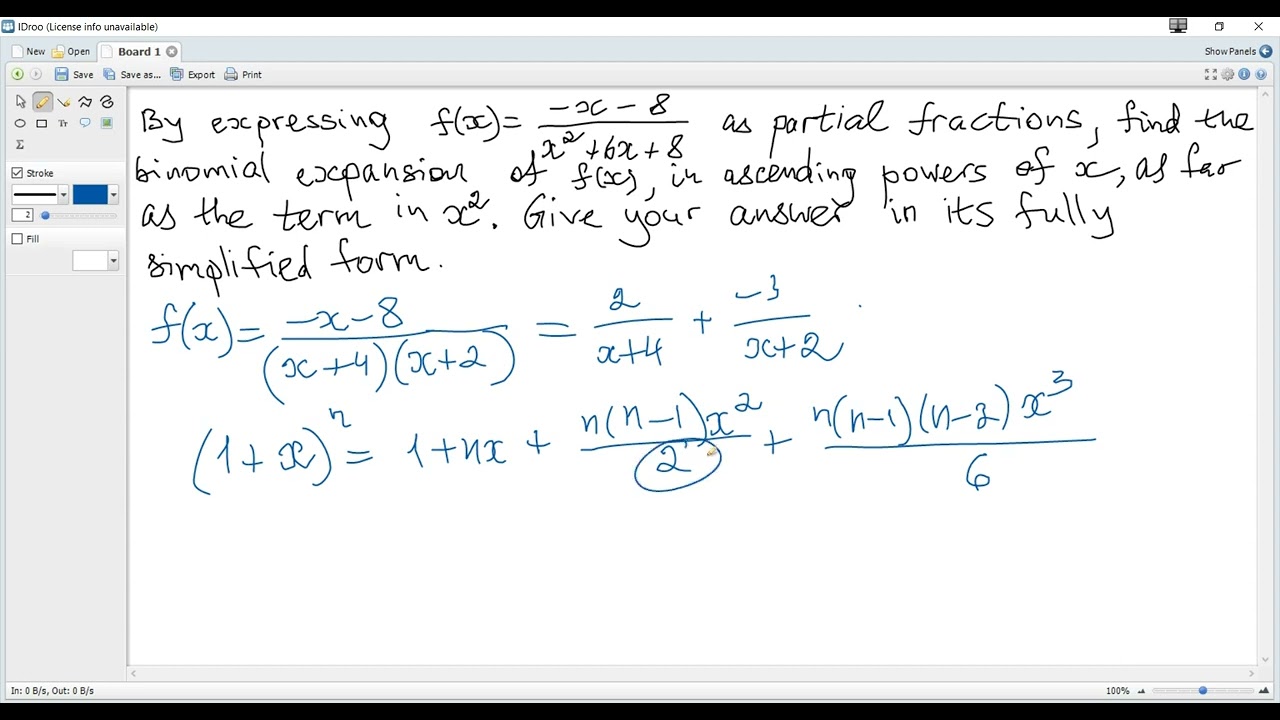 IDroo (License info unavailable)
New Open Board 1 Show Panels
Save Save as... Export Print
Tr
Σ
Stroke
2
Fill
By expressing f(x) = (-x - 8)/(x² + 6x + 8) as partial fractions, find the
binomial expansion of f(x), in ascending powers of x, as far
as the term in x². Give your answer in its fully
simplified form.
f(x) = (-x - 8)/((x+4)(x+2)) = 2/(x+4) + -3/(x+2)
(1+x)ⁿ = 1 + nx + n(n-1)x²/2 + n(n-1)(n-2)x³/6
In: 0 B/s, Out: 0 B/s 100%